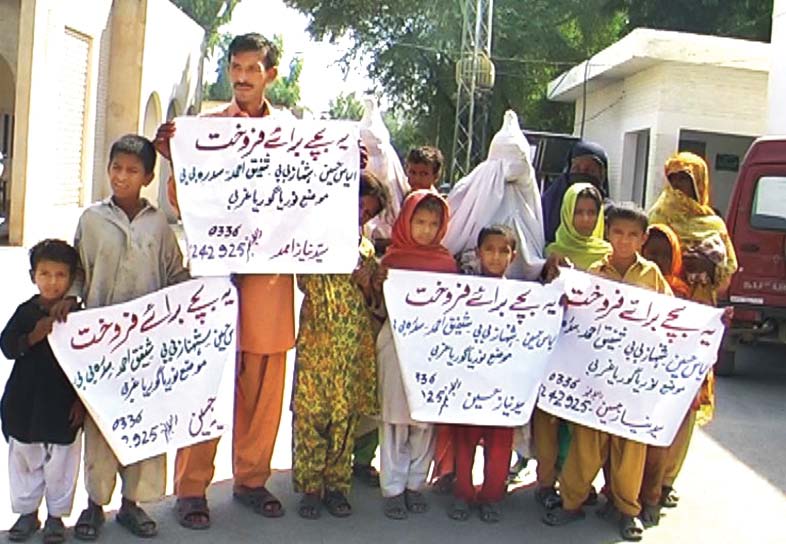 یہ بچے برائے فروخت
الیاس حسین، شہناز بی بی، شفیق احمد، سدرہ بی بی
موضع نوریا گوریا غربی
0336
242925 سید نیاز احمد
یہ بچے برائے فروخت
حسین، شہناز بی بی، شفیق احمد، سدرہ بی بی
موضع نوریا گوریا غربی
0336
2925 حسین
یہ بچے برائے فروخت
یاس حسین، شہناز بی بی، شفیق احمد، سدرہ بی بی
موضع نوریا گوریا غربی
936
125 سید نیاز حسین
یہ بچے برائے فروخت
یاس حسین، شہناز بی بی، شفیق احمد، سدرہ
موضع نوریا گوریا غربی
0336
242925 سید نیاز حسین